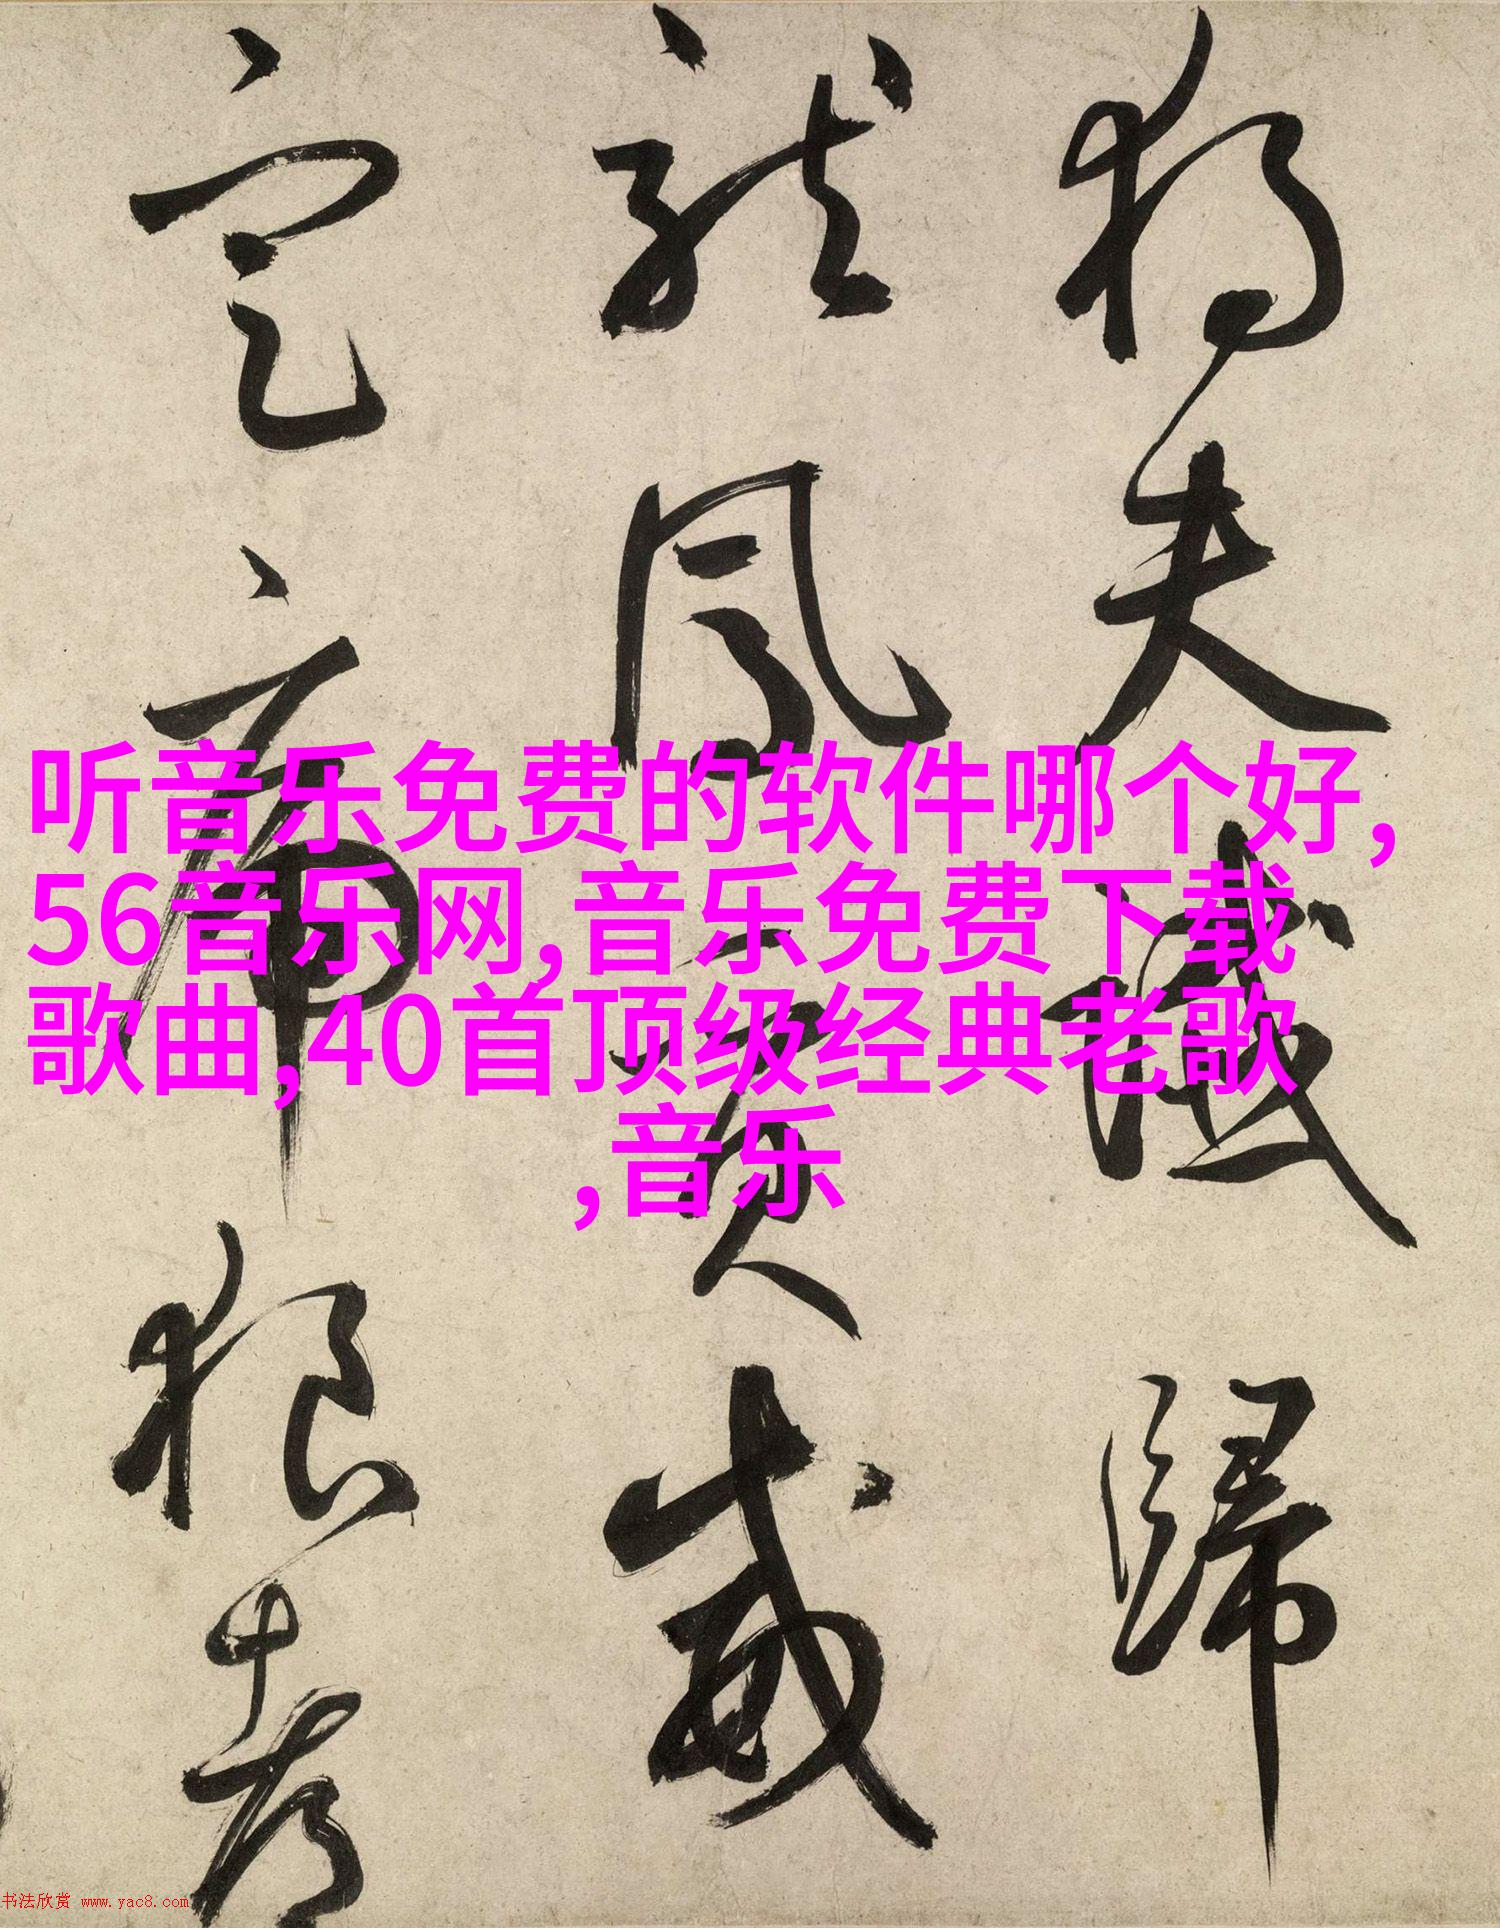 獨夫讖歸
龍鳳質威
定虎狼都
听音乐免费的软件哪个好,
56音乐网,音乐免费下载
歌曲,40首顶级经典老歌
,音乐
书法欣赏 www.yac8.com